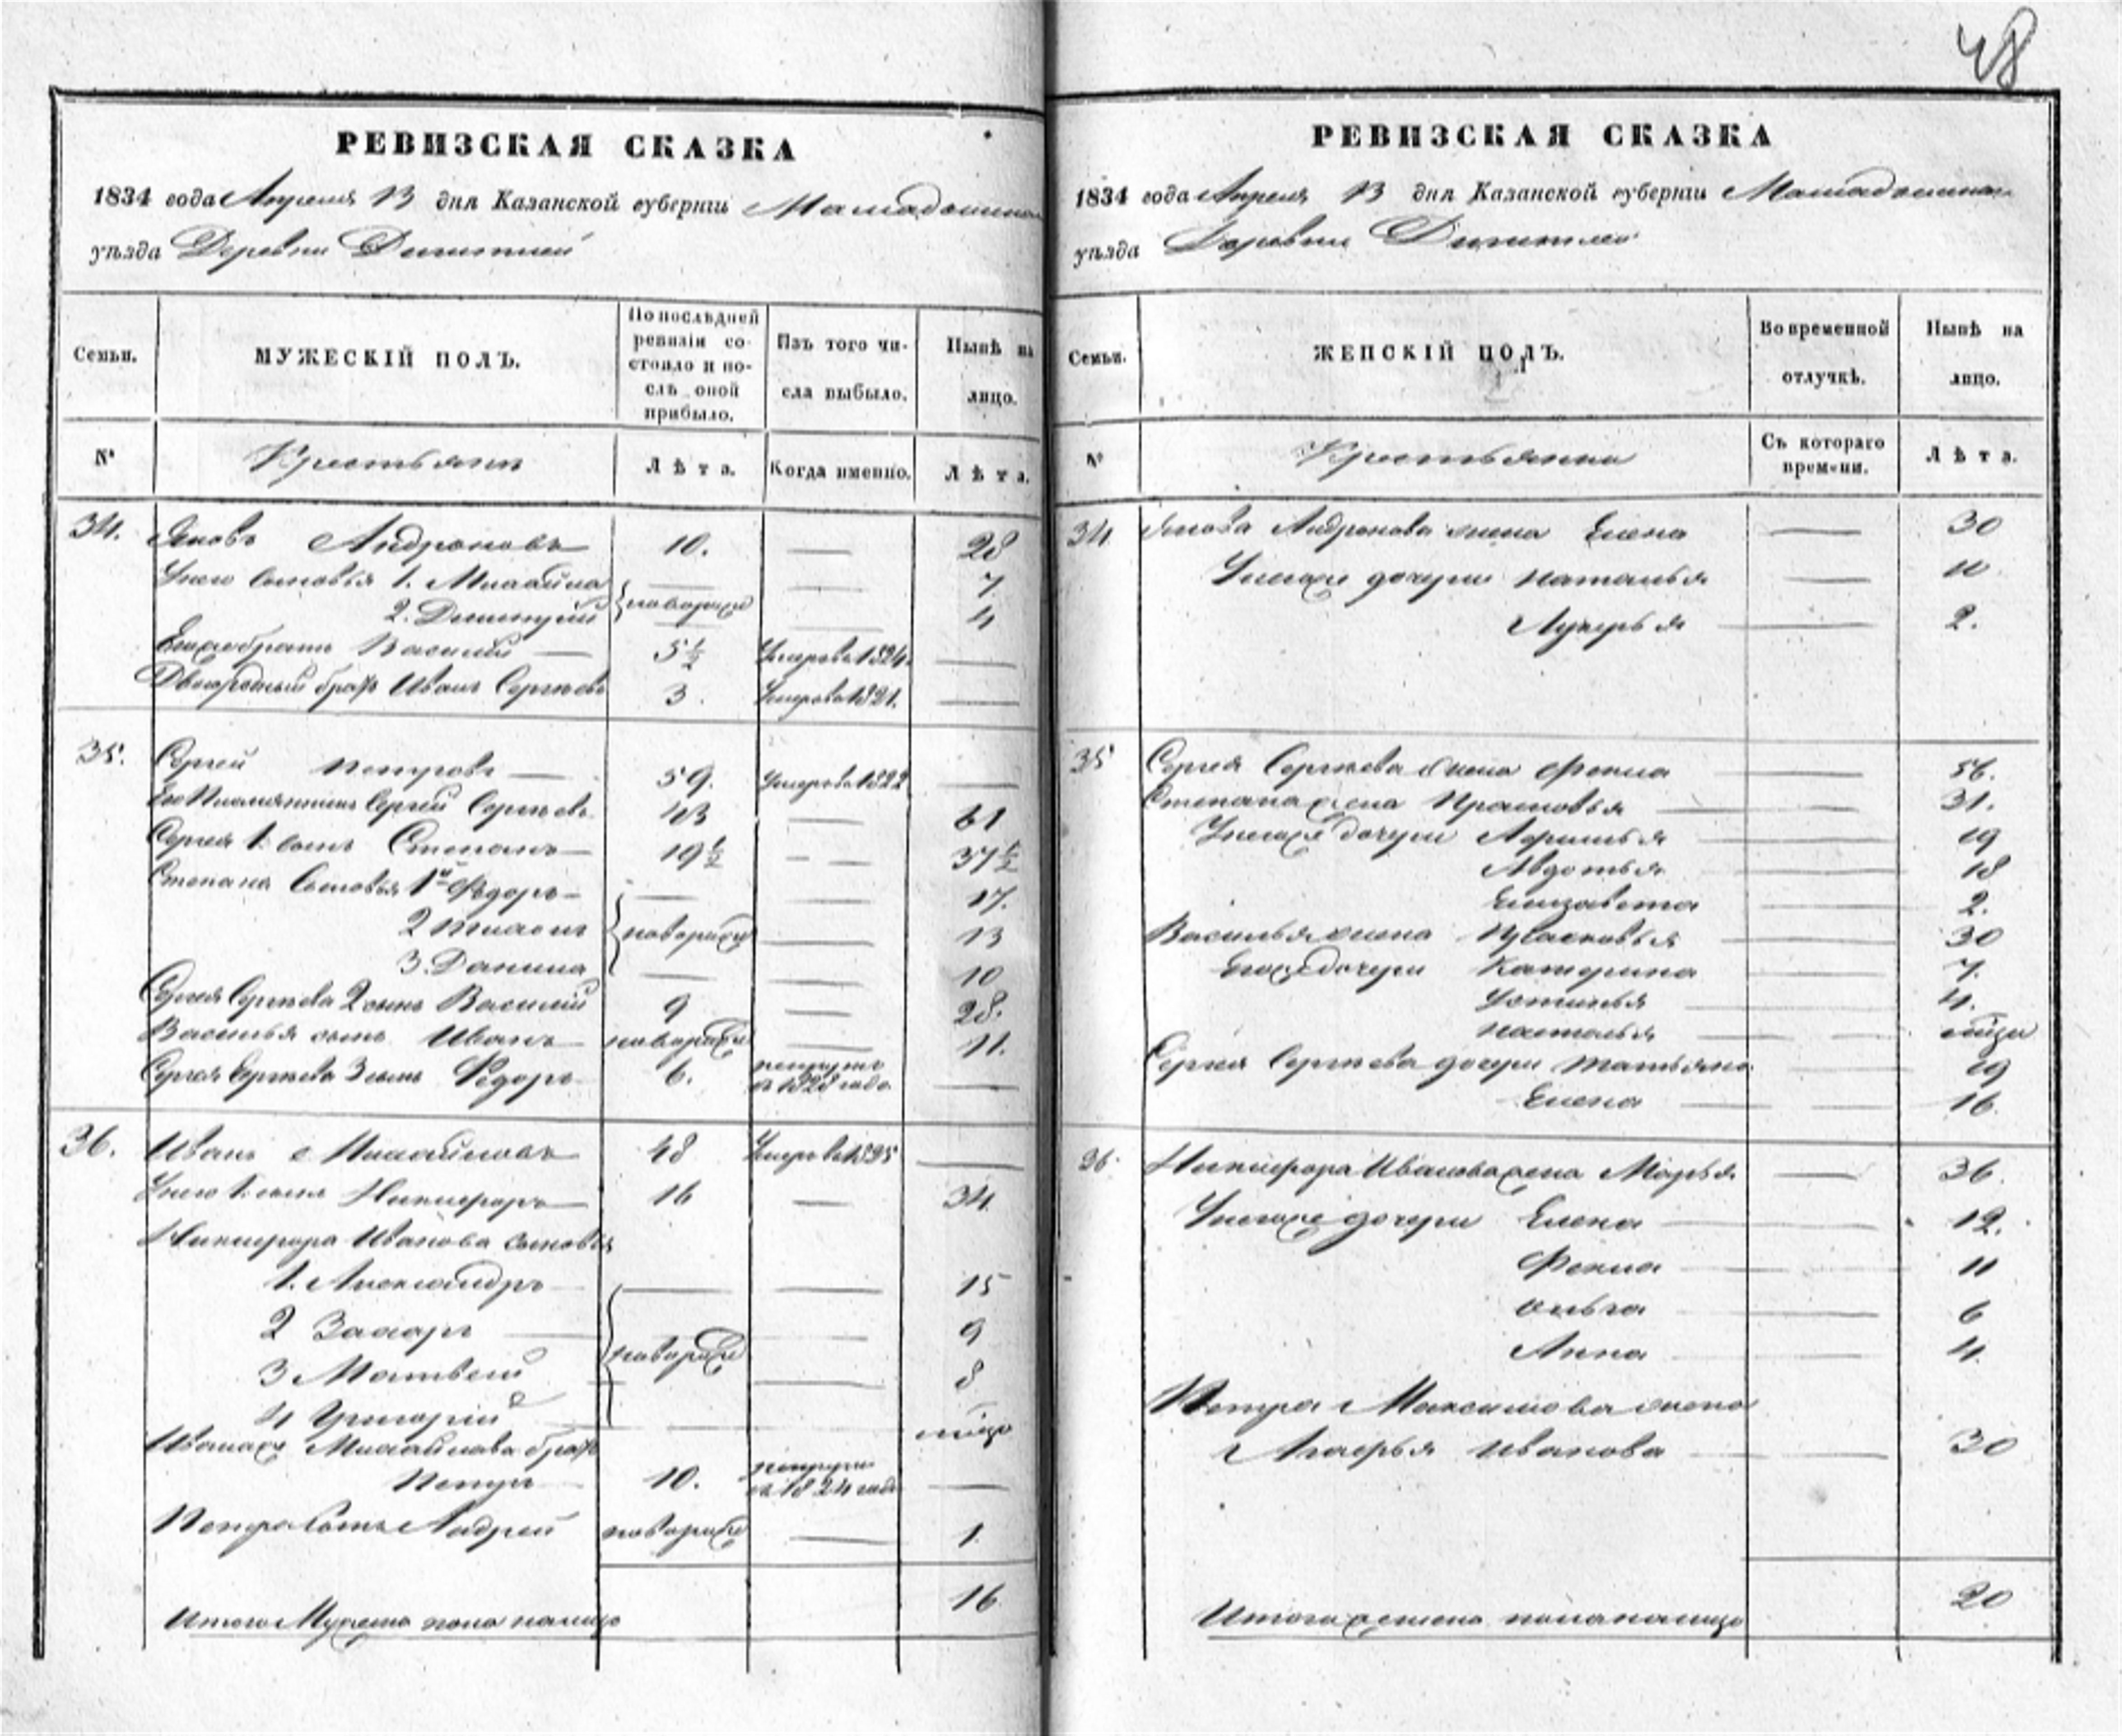 48
РЕВИЗСКАЯ СКАЗКА
1834 года Апреля 13 дня Казанской губернии Мамадышска
уѣзда Деревни
Семьи.
МУЖЕСКІЙ ПОЛЪ.
По послѣдней ревизіи состояло и послѣ оной прибыло.
Изъ того числа выбыло.
Нынѣ на лицо.
№
Крестьянъ
Лѣта.
Когда именно.
Лѣта.
34. Яковъ Андроновъ 10. — 28
Унего Сыновья 1. Михайла — — 7
2. Дмитрій новорожде — 4
Егожебратъ Василий — 5½ Умеръ в 1824. —
Двоюродный братъ Иванъ Сергѣевъ 3. Умеръ в 1821. —
35. Сергей Петровъ — 59. Умеръ в 1822 —
Ево Племянникъ Сергей Сергѣевъ 43 — 61
Сергея 1. сынъ Степанъ — 19½ — — 37½
Степана Сыновья 1й Ѳедоръ — — — 17.
2 новорожде — 13
3. Данила — — 10
Сергея Сергѣева 2 сынъ Василий 9 — 28.
Василья сынъ Иванъ — новорожде — 11.
Сергея Сергѣева 3 сынъ Ѳедоръ 6. рекрутъ в 1828 годе —
36. Иванъ Михайловъ 48 Умеръ в 1825 —
Унего 1. сынъ Никифоръ — 16 — 34
Никифора Иванова сыновья
1. Александръ — — — 15
2 Захаръ — — 9
3 Матвей новорожде — 8
4 Григорий — —
Иванаже Михайлова братъ
Петръ 10. рекруты в 1824 годе —
Петра Сынъ Андрей новорожде — 1.
Итого Мужеска пола налицо 16
РЕВИЗСКАЯ СКАЗКА
1834 года Апреля 13 дня Казанской губернии Мамадышска
уѣзда Деревни
Семьи.
ЖЕНСКІЙ ПОЛЪ.
Во временной отлучкѣ.
Нынѣ на лицо.
№
Крестьянка
Съ котораго времени.
Лѣта.
34 Якова Андронова жена Елена — 30
Унихже дочери Наталья — 11
Лукерья — 2.
35 Сергея Сергѣева жена Фекла — 56.
Степана жена Прасковья — 31.
Унихже дочери — 19
Авдотья — 18
Елизавета — 2.
Василья жена Прасковья — 30
Егожедочери Катерина — 7.
Устинья — 4.
Наталья — —
Сергея Сергѣева дочери Татьяна — 19
Елена — — 16.
36. Никифора Иванова жена Марья — 36.
Унихже дочери Елена — 12.
Фекла — 11
Ольга — 6
Анна — 4.
Петра Максимова жена
Иванова — 30
Итого женска пола налицо 20